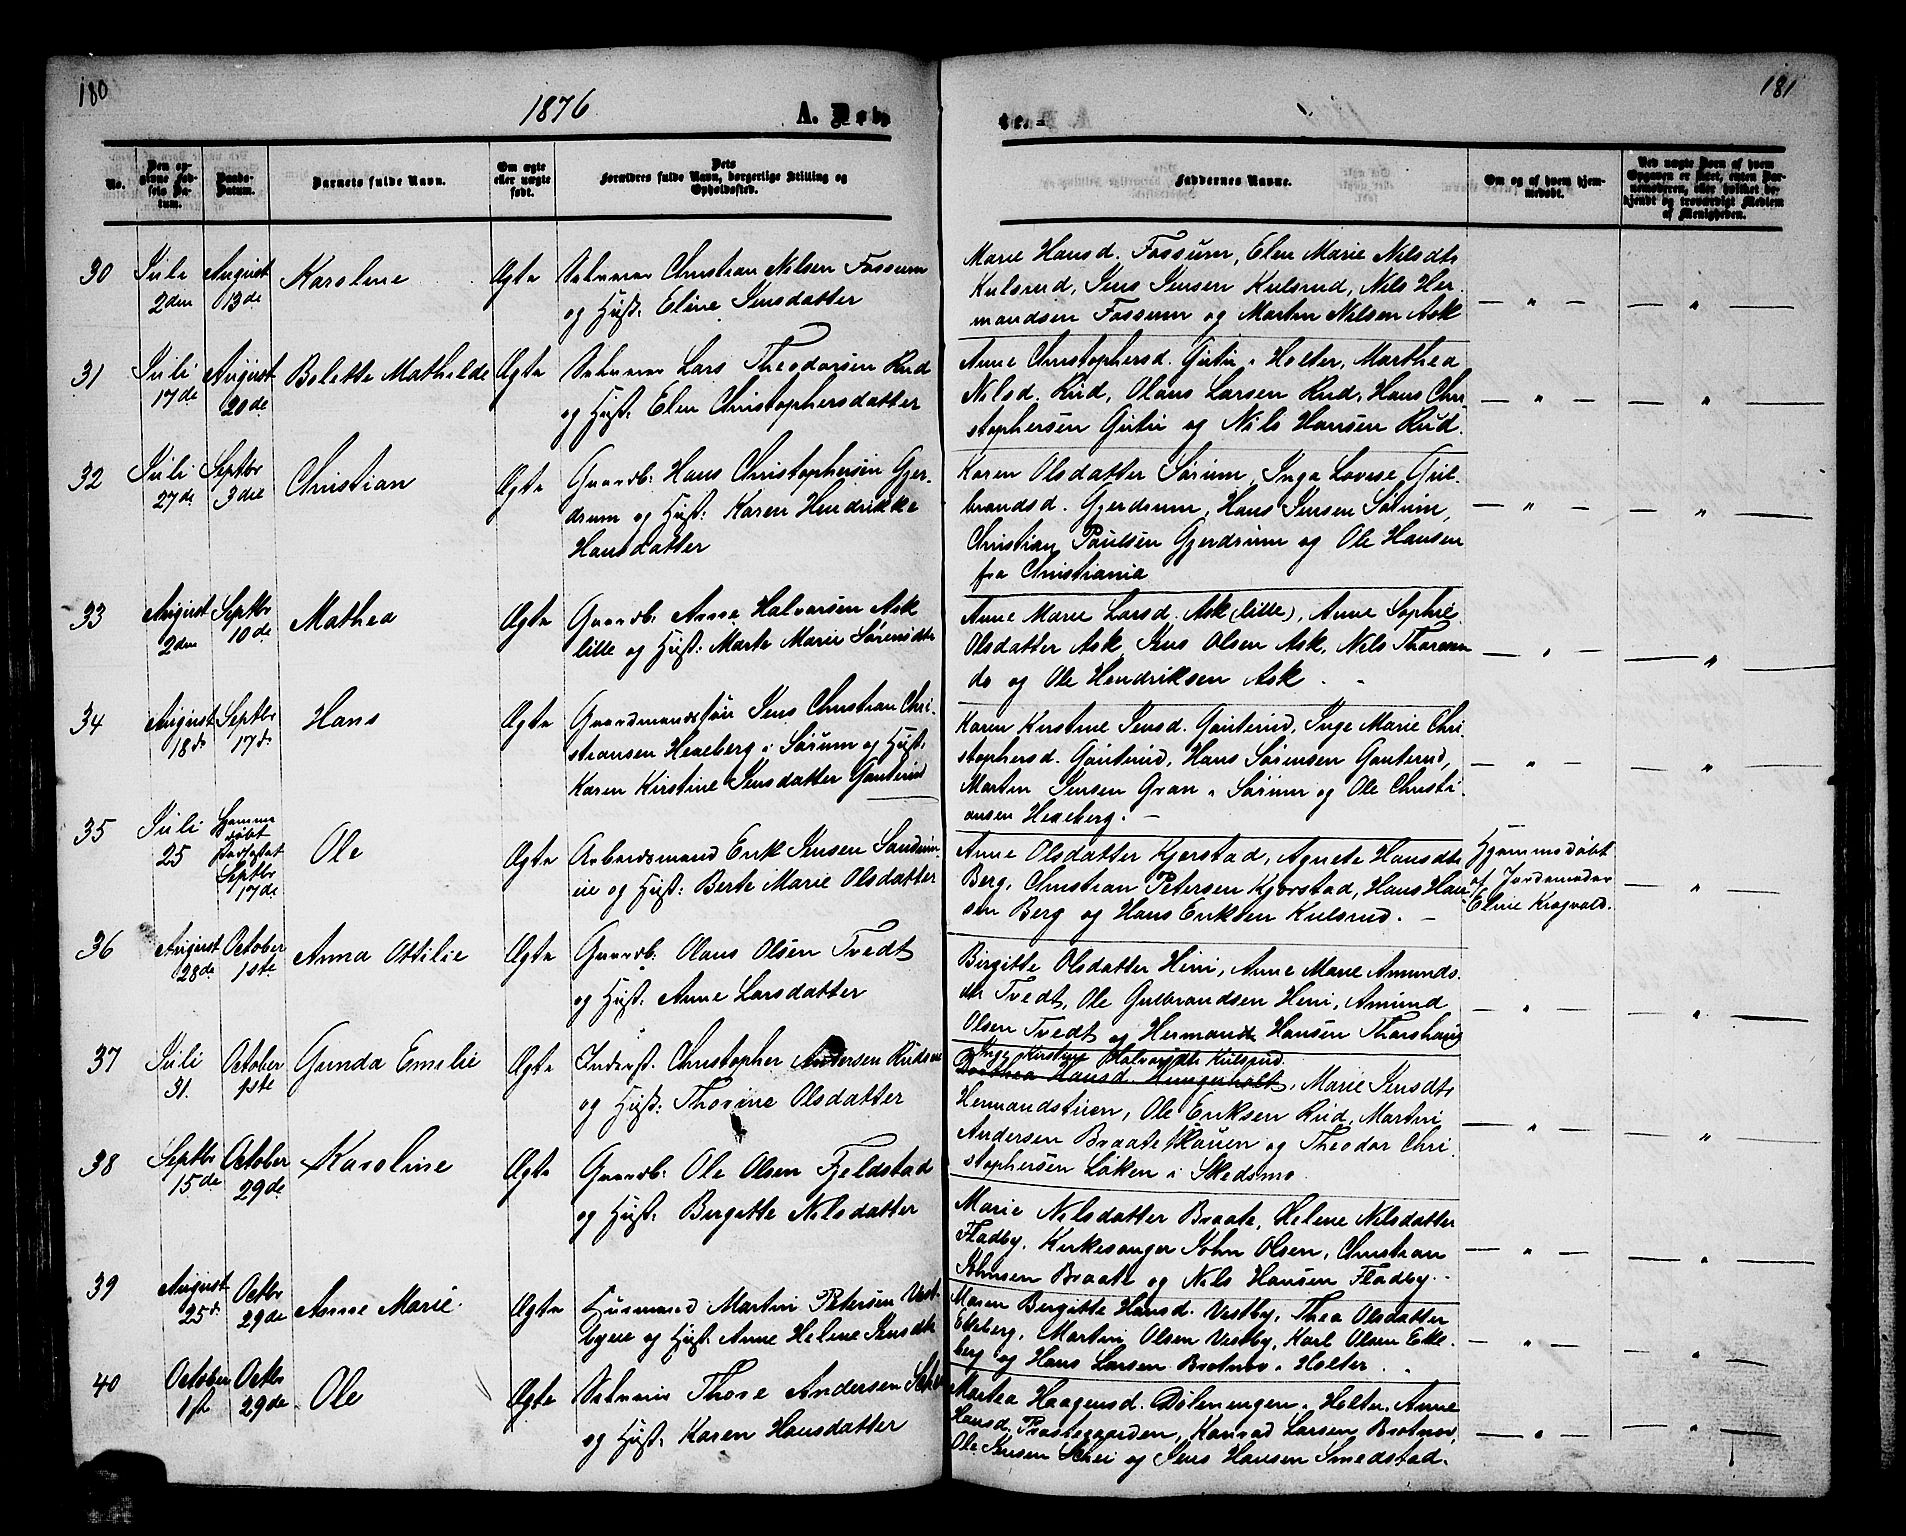 180
1876
A. Døb
No.
Den op-
givne Fød-
sels Da-
tum.
Daabs-
Datum.
Barnets fulde Navn.
Om ægte
eller uægte
født.
Dets
Forældres fulde Navn, borgerlige Stilling og
Opholdssted.
30 Juli 2den August 13de Karoline Ægte Christian Nilsen Fossum
og Hust: Eline Jensdatter
31 Juli 17de August 20de Bolette Mathilde Ægte Lars Theodorsen Rud
og Hust: Elen Christophersdatter
32 Juli 27de Septbr 3die Christian Ægte Gaardb: Hans Christophersen Gjer-
drum og Hust: Karen Hendrikke
Hansdatter
33 August 2den Septbr 10de Mathea Ægte Gaardb: Halvorsen Ask
lille og Hust: Marte Marie Sørensdtr
34 August 18de Septbr 17de Hans Ægte Gaardmandssøn Jens Christian Chri-
stiansen Hexeberg i Sørum og Hust:
Karen Kirstine Jensdatter Gauterud
35 Juli 25 Hjemme
døbt
Septbr
17de Ole Ægte Arbeidsmand Erik Jensen
og Hust: Berte Marie Olsdatter
36 August 28de October 1ste Anna Ottilie Ægte Gaardb: Olaus Olsen Tvedt
og Hust: Anne Larsdatter
37 Juli 31. October 1ste Gunda Emilie Ægte Inderst: Christopher Andersen
og Hust: Thorine Olsdatter
38 Septbr 15de October 29de Karoline Ægte Gaardb: Ole Olsen Fjeldstad
og Hust: Birgitte Nilsdatter
39 August 25de Octbr 29de Anne Marie Ægte Husmand Martin Petersen Vest-
byeie og Hust: Anne Helene Jensdtr
40 October 1ste Octbr 29de Ole Ægte Thore Andersen
og Hust: Karen Hansdatter
181
te.
Faddernes Navne.
Om og af hvem hjem-
medøbt.
Ved uægte Børn af hvem
Opgaven er skeet, enten Bar-
nemoderen, eller hvilket be-
kjendt og troværdigt Medlem
af Menigheden.
Marie Hansd. Fossum, Elen Marie Nilsdtr
Kulsrud, Jens Jensen Kulsrud, Nils Her-
mandsen Fossum og Martin Nilsen Ask — " — — " —
Anne Christophersd. Gutu i Holter, Marthea
Nilsd. Rud, Olaus Larsen Rud, Hans Chri-
stophersen Gutu og Nils Hansen Rud. — " — — " —
Karen Olsdatter Sørum, Inga Lovise Gul-
brandsd. Gjerdrum, Hans Jensen Sørum,
Christian Paulsen Gjerdrum og Ole Hansen
fra Christiania — " — — " —
Anne Marie Larsd. Ask (lille), Anne Sophie
Olsdatter Ask, Jens Olsen Ask, Nils
do og Ole Hendriksen Ask. — " — — " —
Karen Kirstine Jensd. Gauterud, Inge Marie Chri-
stophersd. Gauterud, Hans Sørensen Gauterud,
Martin Jensen Gran i Sørum og Ole Christi-
ansen Hexeberg. — — " — — " —
Anne Olsdatter Kjerstad, Agnete Hansdtr
Berg, Christian Petersen Kjerstad, Hans Han-
sen Berg og Hans Eriksen Kulsrud. —
Hjemmedøbt
af Jordemoder
Eline Krogvold. — " —
Birgitte Olsdatter Heni, Anne Marie Amunds-
dtr Tvedt, Ole Gulbrandsen Heni, Amund
Olsen Tvedt og Hermand Hansen Thorshaug — " — — " —
Inge Kirstine Halvorsdtr Kulsrud.
Dorthea Hansd. Hungerholt, Marie Jensdtr
Hermandstuen, Ole Eriksen Rud, Martin
Andersen Braate og Theodor Chri-
stophersen Løken i Skedsmo. — " — — " —
Marie Nilsdatter Braate, Helene Nilsdatter
Fladby, Kirkesanger John Olsen, Christian
Johnsen Braate og Nils Hansen Fladby. — " — — " —
Maren Birgitte Hansd. Vestby, Thea Olsdatter
Ekeberg, Martin Olsen Vestby, Karl Olsen Eke-
berg og Hans Larsen Brotnov i Holter. — " — — " —
Martea Haagensd. Dølenengen i Holter, Anne
Hansd. Præstegaarden, Konrad Larsen Brotnov,
Ole Jensen Skei og Jens Hansen Smedstad. — " — — " —